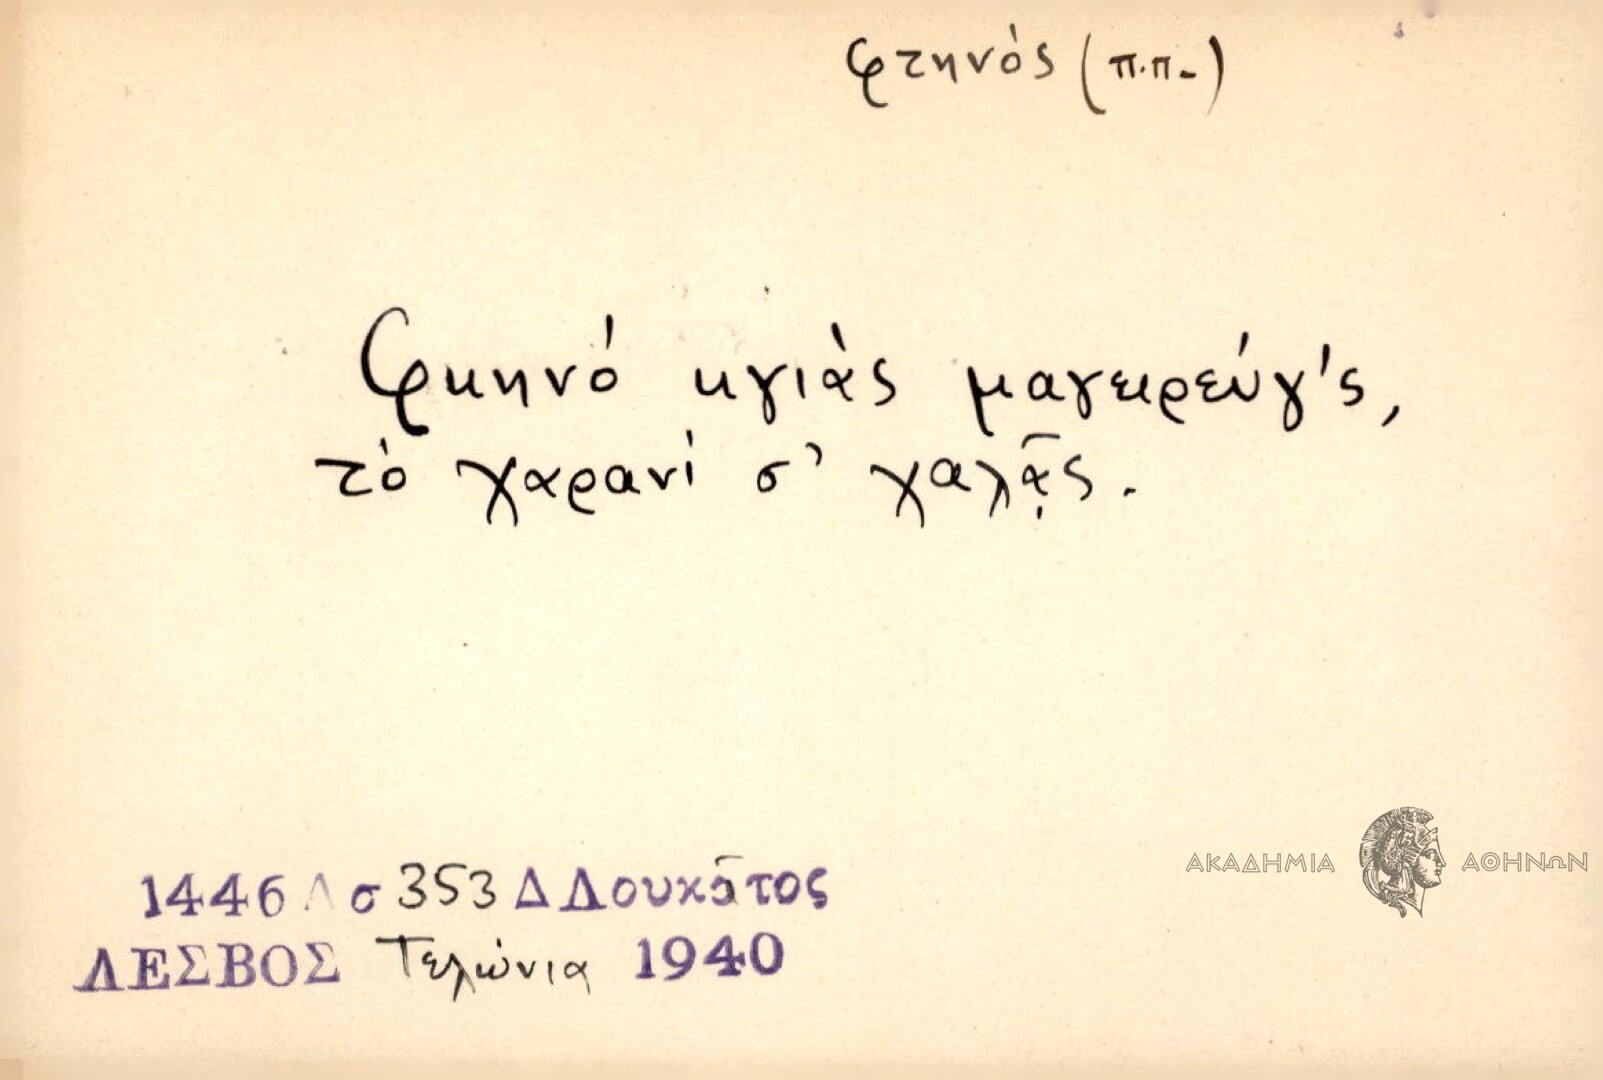 φτηνός (π.π-)
Φκηνό κγιὰς μαγειρεύγ'ς,
τὸ χαρανί σ' χαλᾷς.
1446 Α σ 353 Δ Λουκᾶτος
ΛΕΣΒΟΣ Τελώνια 1940
ΑΚΑΔΗΜΙΑ ΑΘΗΝΩΝ